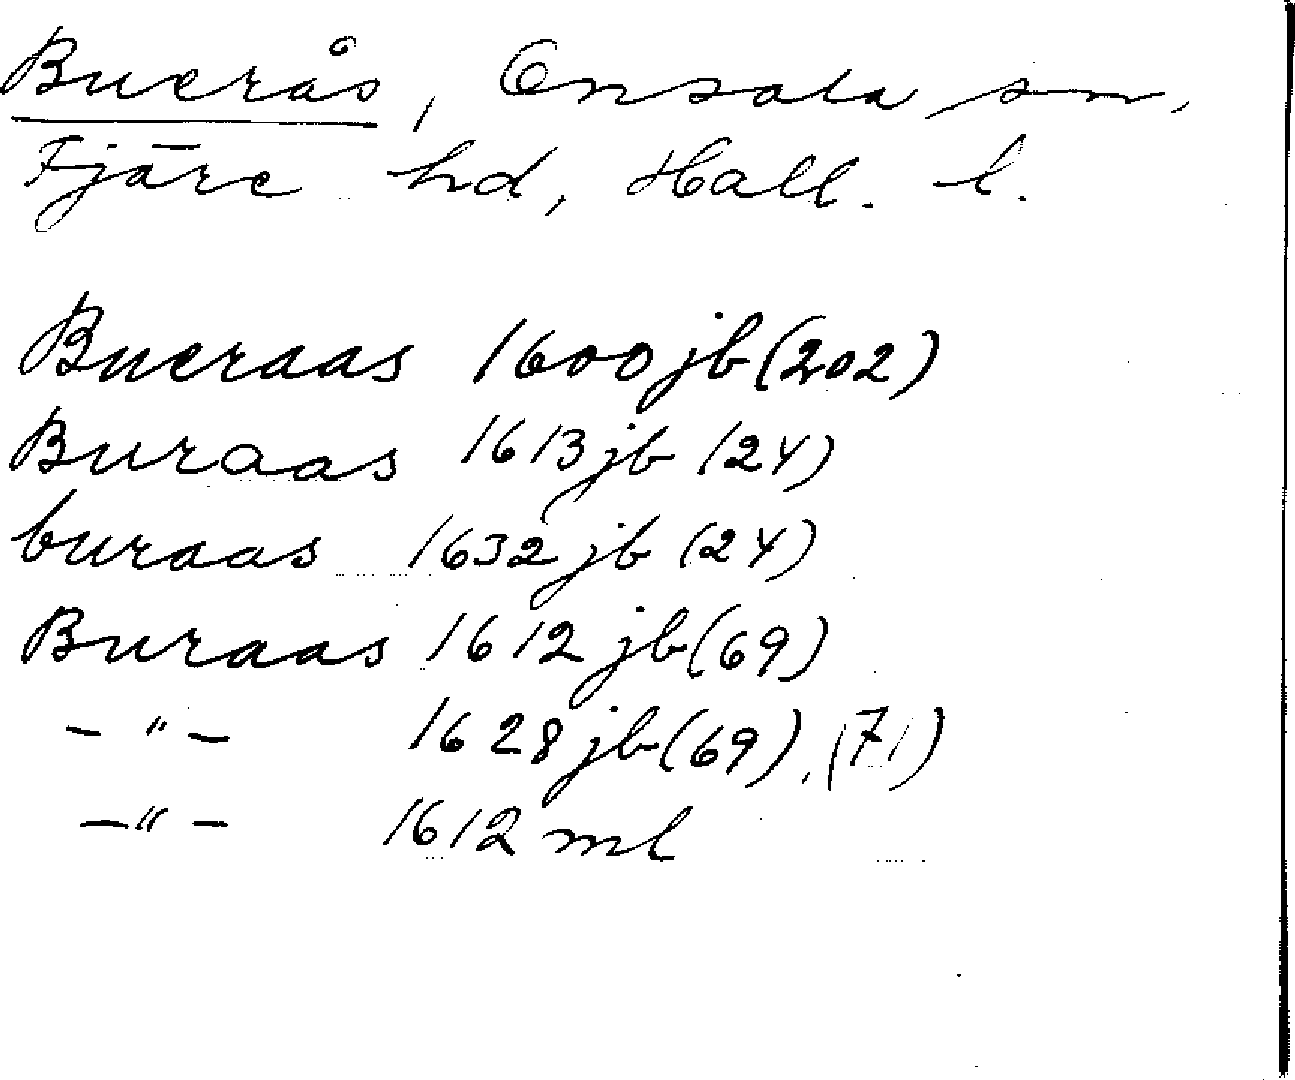 Buerås, Onsala sn,
Fjäre hd, Hall. l.
Bueraas 1600 jb (202)
Buraas 1613 jb (24)
buraas 1632 jb (24)
Buraas 1612 jb (69)
- " - 1628 jb (69), (71)
- " - 1612 ml